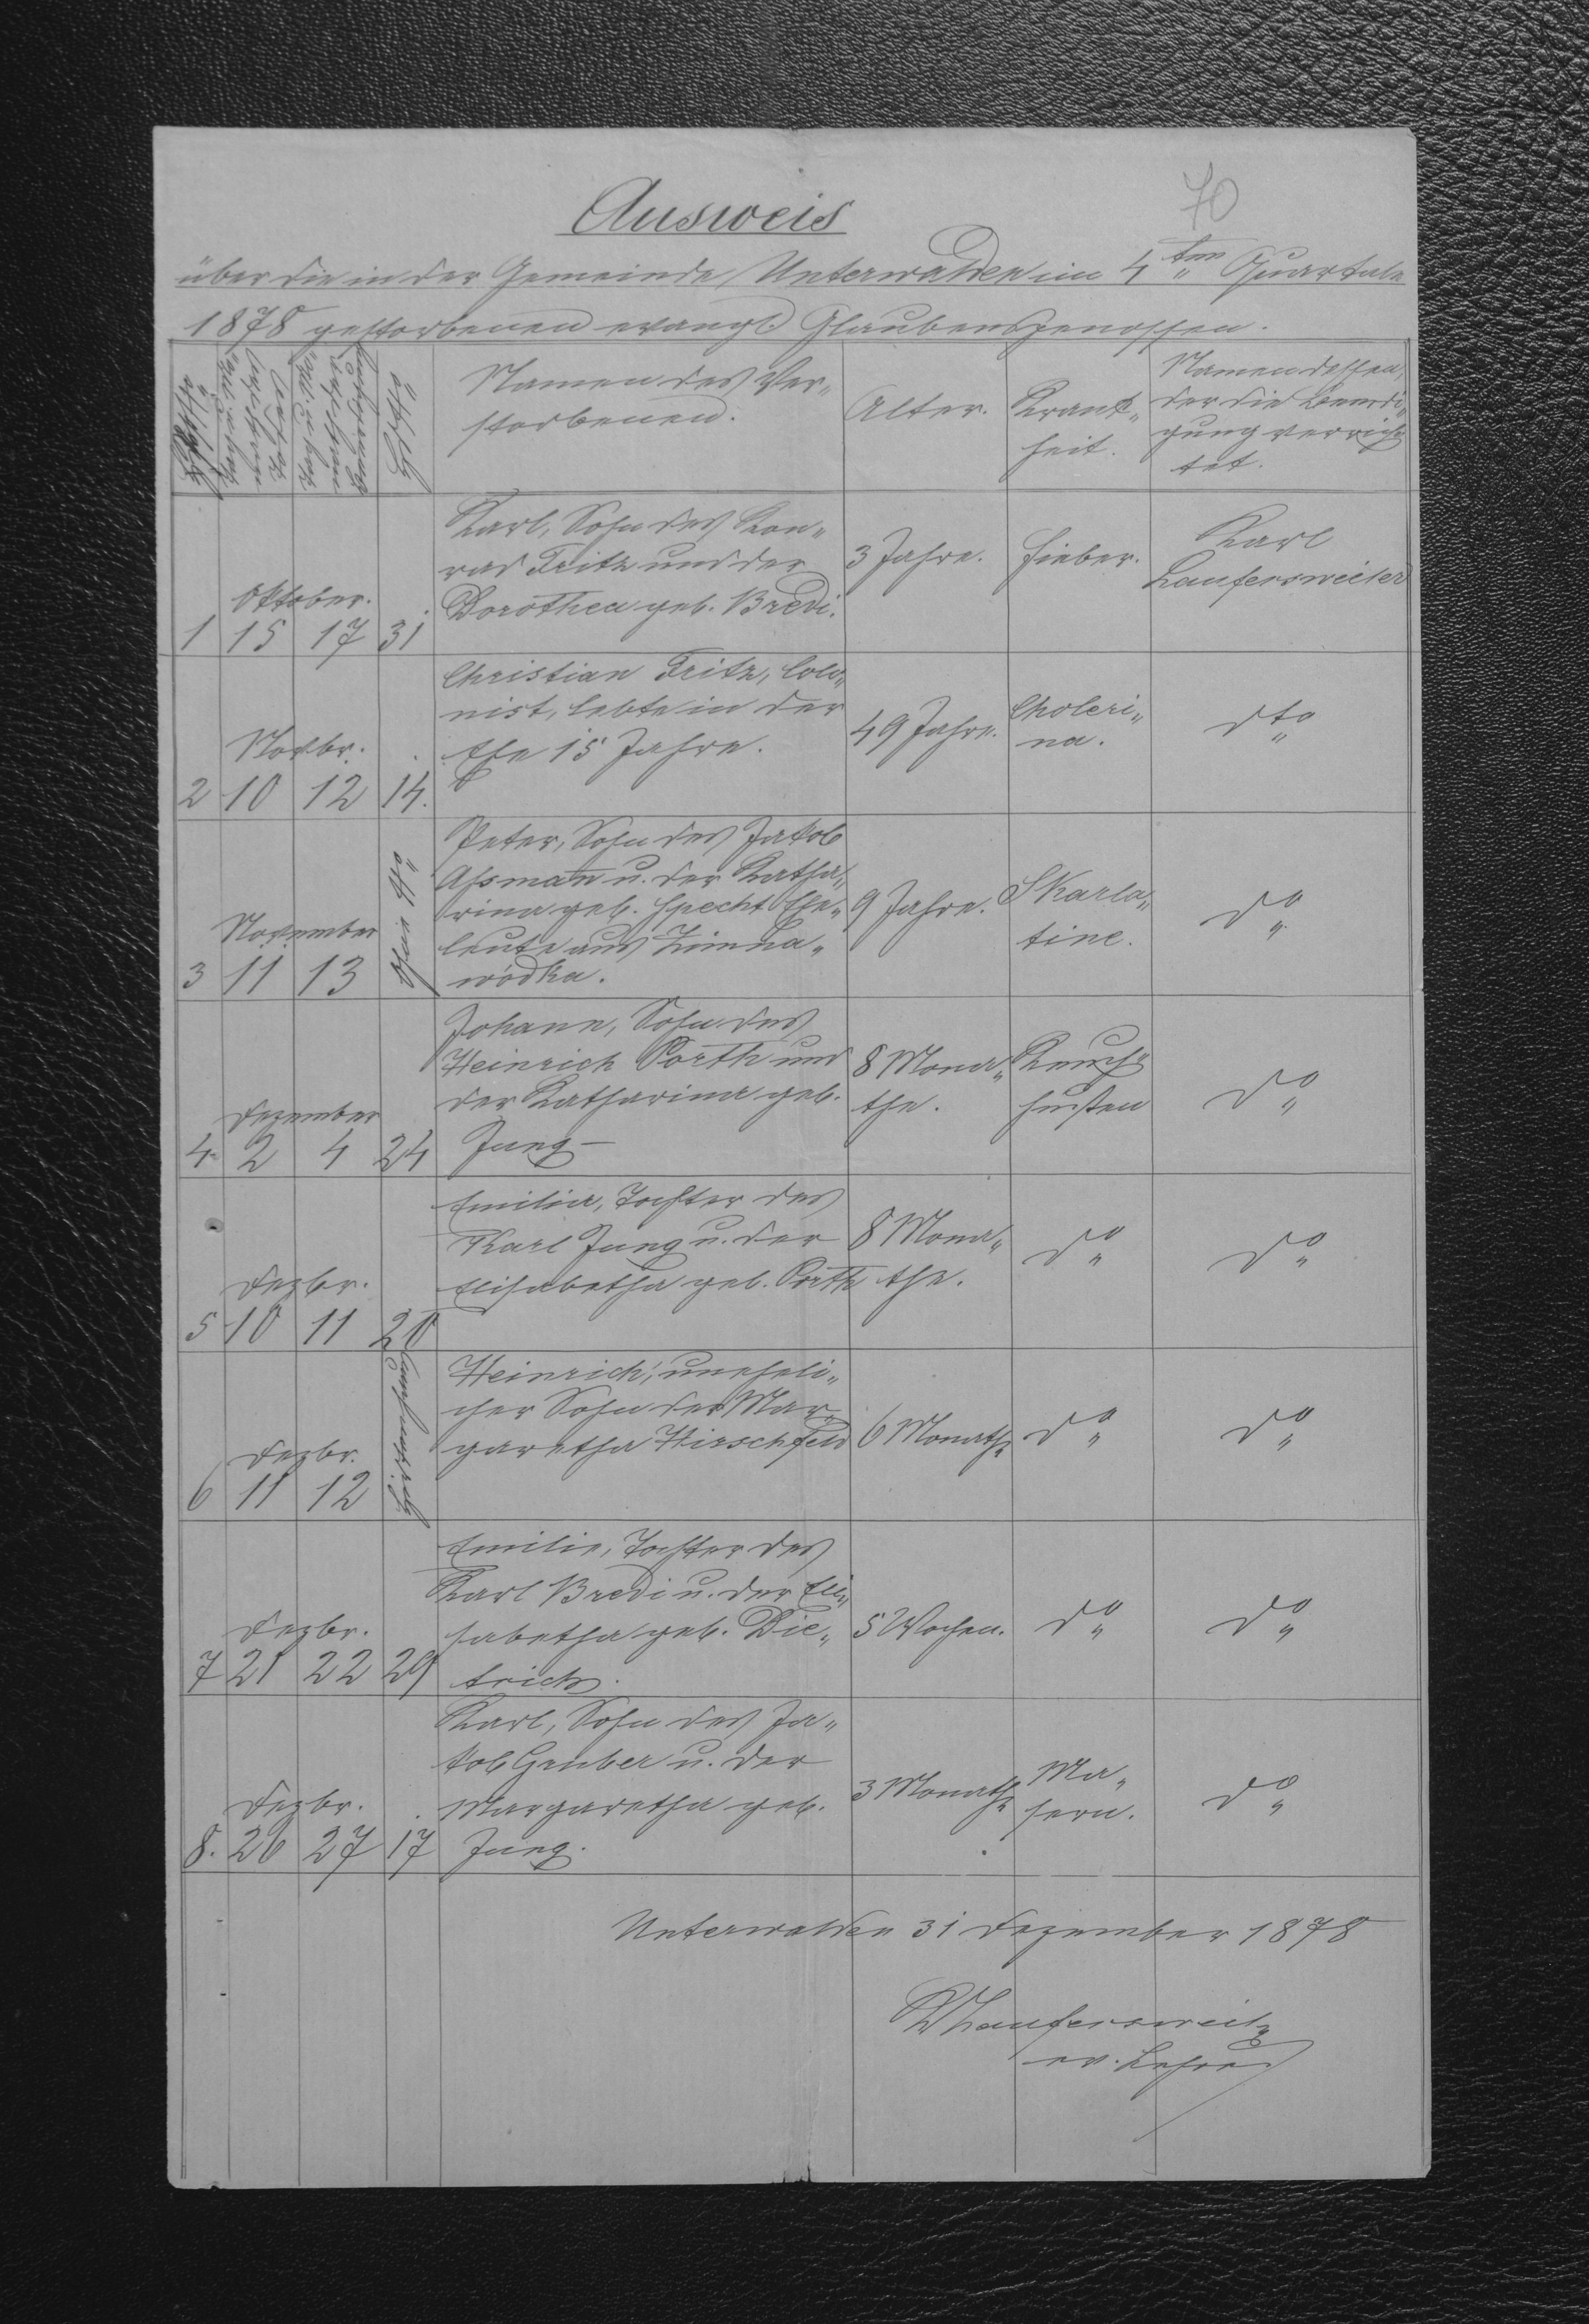 70
Ausweis
über die in der Gemeinde Unterwalden im 4ten Quartale
1878 gestorbenen evangl. Glaubensgenossen.
Namen des Ver„
storbenen.
Alter.
Krank„
heit.
Namen dessen,
der die Beerdi„
gung verrich„
tet.
Oktober.
1 15 17 31
Karl, Sohn des Kon„
rad Fritz und der
Dorothea geb. Bredi.
3 Jahre.
Fieber.
Karl
Laufersweiler
Novbr.
2 10 12 14.
Christian Fritz, Colo„
nist, lebte in der
Ehe 15 Jahre.
49 Jahre.
Choleri„
na.
dto
November
3 11 13
Peter, Sohn des Jakob
Assman u. der Katha„
rina geb. Specht Ehe„
leute aus Zimna„
wódka.
9 Jahre.
Skarla„
tine.
do
Dezember
4 2 4 24
Johann, Sohn des
Heinrich Porth und
der Katharina geb.
Jung –
8 Mona„
the.
Keuch„
husten
do
Dezbr.
5 10 11 20
Emilia, Tochter des
Karl Jung u. der
Elisabetha geb. Porth
8 Mona„
the.
do
do
Dezbr.
6 11 12
Heinrich, uneheli„
cher Sohn der Mar„
garetha Hirschfeld
6 Monathe
do
do
Dezbr.
7 21 22 29
Emilie, Tochter des
Karl Bredi u. der Eli„
sabetha geb. Die„
trich.
5 Wochen.
do
do
Dezbr.
8. 26 27 17
Karl, Sohn des Ja„
kob Gruber u. der
Margaretha geb.
Jung.
3 Monathe
Ma„
sern.
do
Unterwalden 31 Dezember 1878
K Laufersweiler
ev. Lehrer